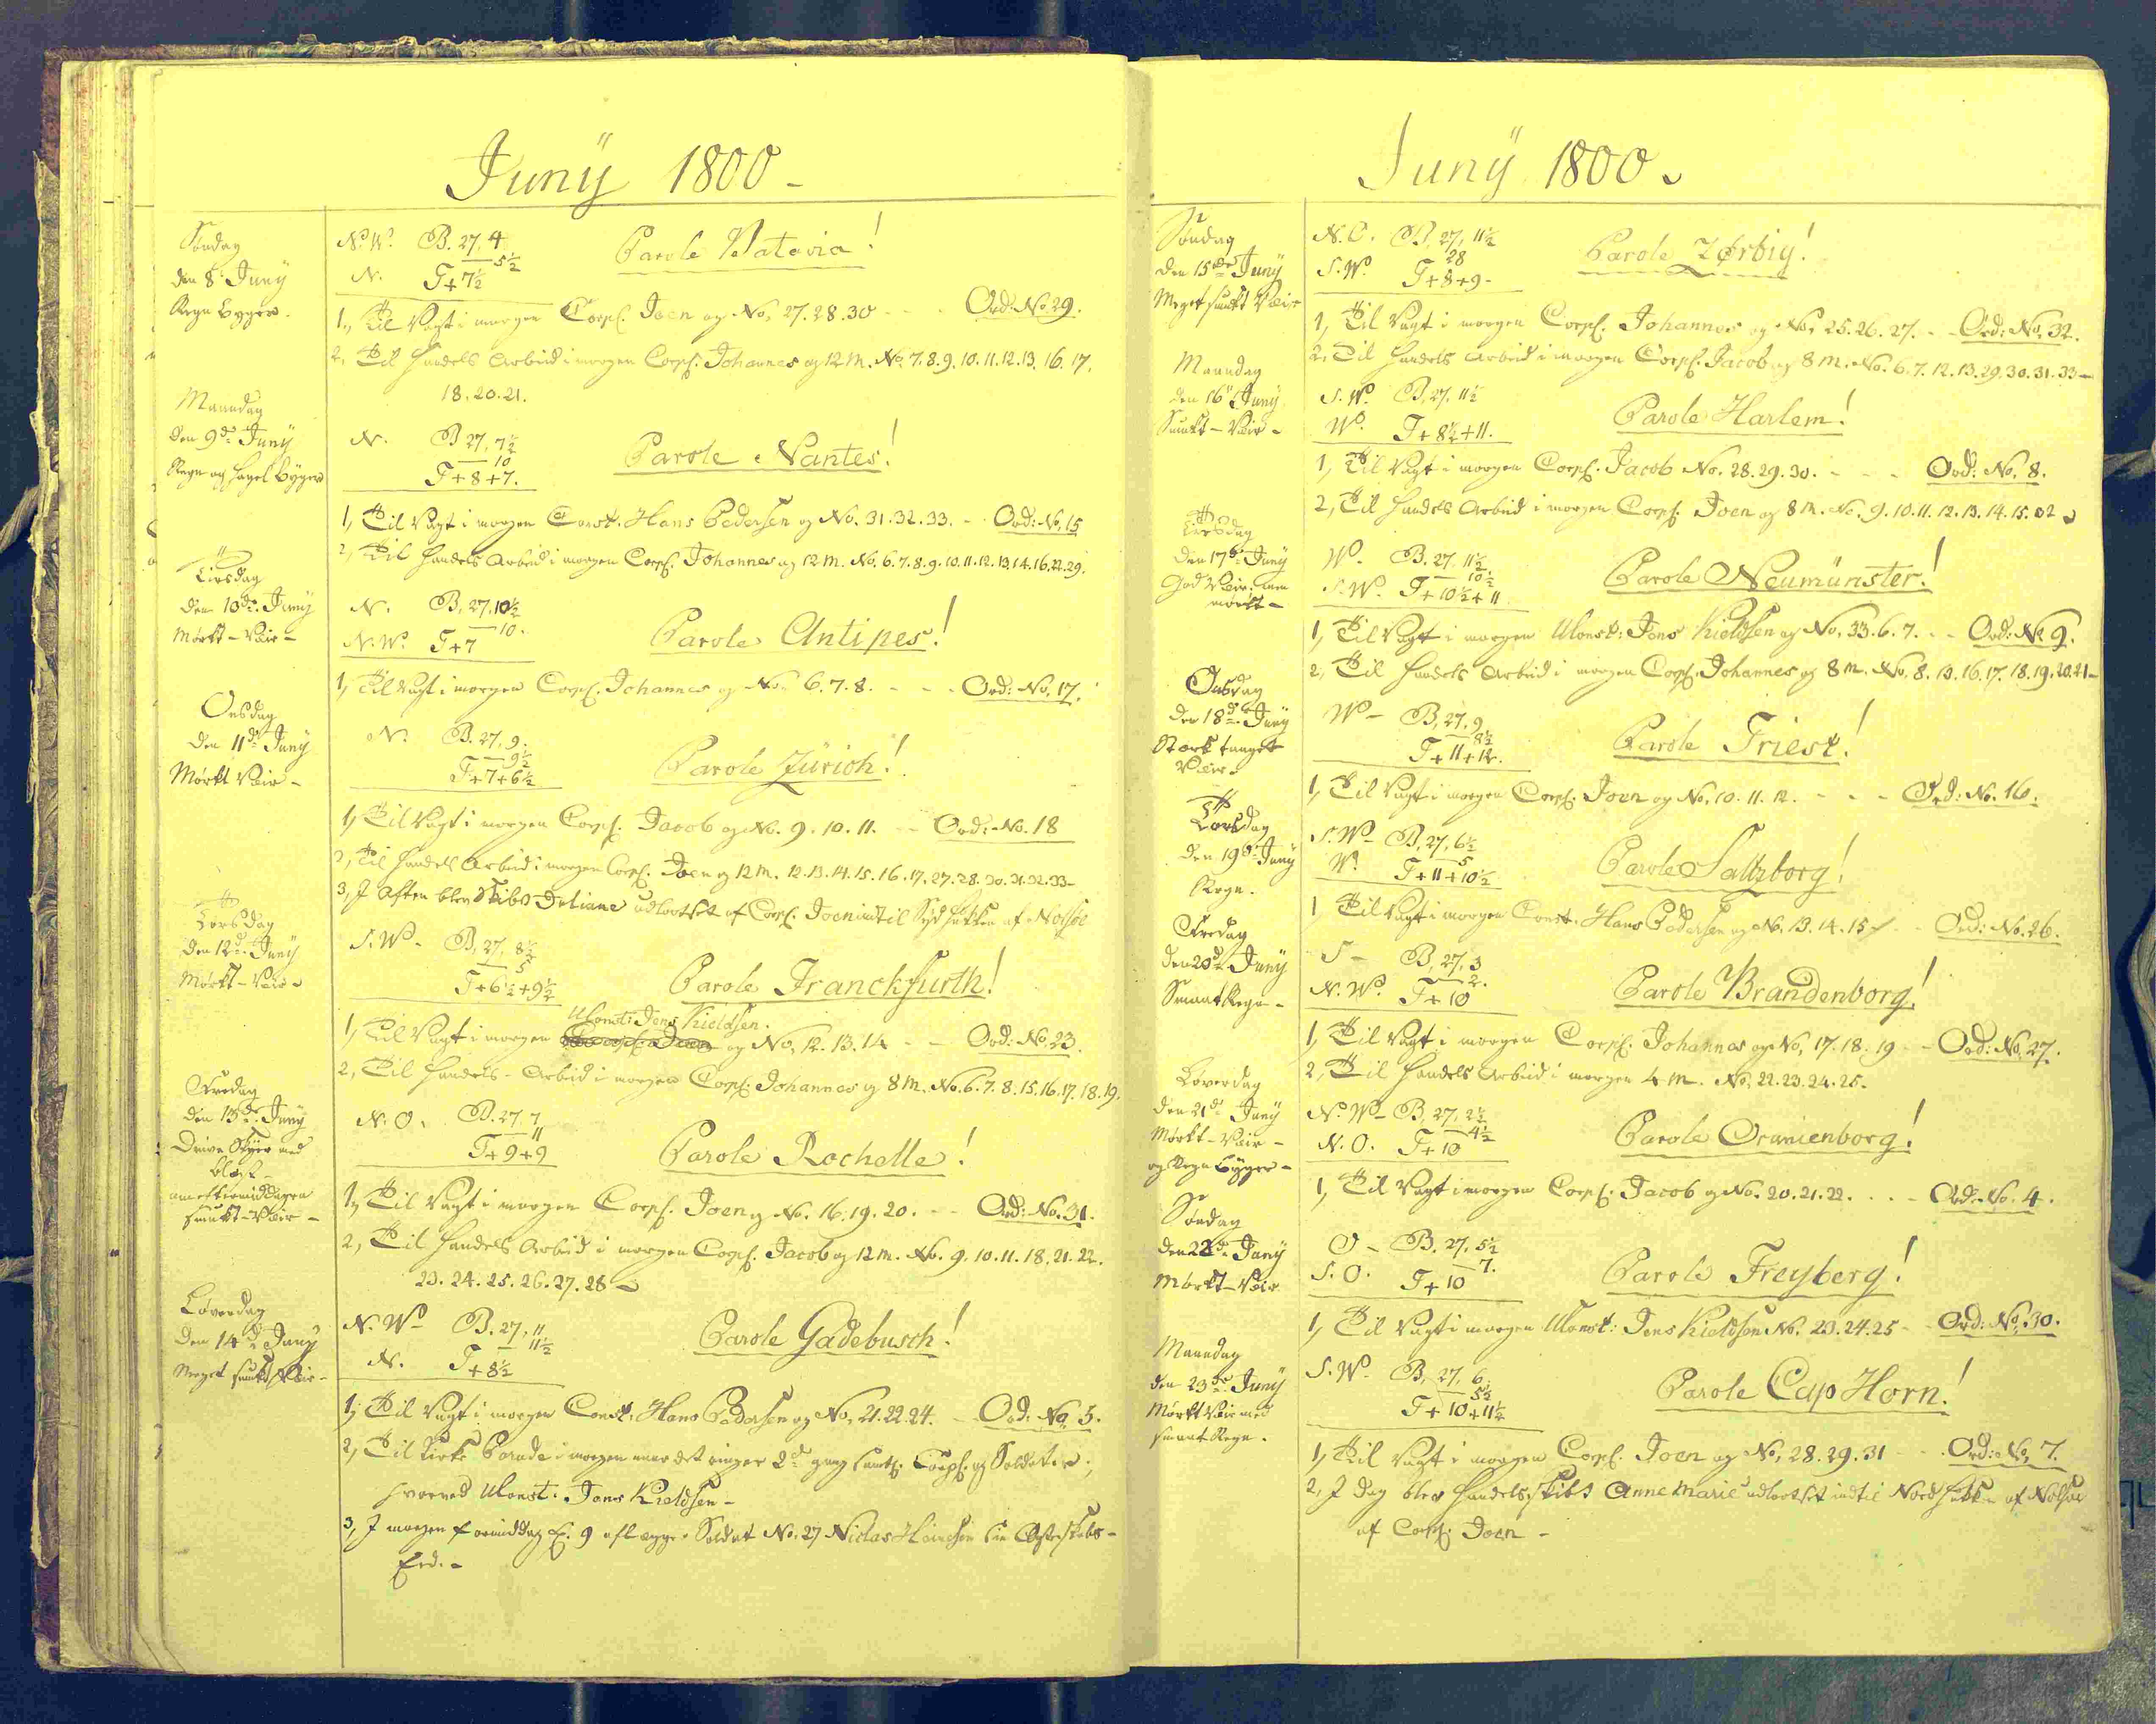 Junÿ 1800 -
Søndag
den 8de Junÿ
Regn Byger.
N.W. B. 27, 4
5½
N. T+7½
Parole Batavia!
1, Til Vagt i morgen Corpl. Joen og No. 27. 28. 30 - - - Ord: No. 29.
2, Til Handels Arbeid i morgen Corpl. Johannes og 12 M. No. 7. 8. 9. 10. 11. 12. 13. 16. 17.
18. 20. 21.
Mandag
den 9de Junÿ
Regn og Hagel Byger
N. B. 27, 7½
10
T+8+7.
Parole Nantes!
1, Til Vagt i morgen Const. Hans Pedersen og No. 31. 32. 33. - Ord: No. 15
2, Til Handels Arbeid i morgen Corpl. Johannes og 12 M. No. 6. 7. 8. 9. 10. 11. 12. 13. 14. 16. 22. 29.
Tirsdag
den 10de Junÿ
Mørkt - Veir -
N. B. 27, 10½
10.
N.W. T+7
Parole Antipes!
1, Til Vagt i morgen Corpl. Johannes og No. 6. 7. 8. - - - Ord: No. 17.
Onsdag
den 11de Junÿ
Mørkt Veir -
N. B. 27, 9.
9½
T+7+6½
Parole Zürich!
1, Til Vagt i morgen Corpl. Jacob og No. 9. 10. 11. - - Ord: No. 18
2, Til Handels Arbeid i morgen Corpl. Joen og 12 M. 12. 13. 14. 15. 16. 17. 27. 28. 30. 31. 32. 33 -
3, I Aften blev Skibet Juliane udlootset af Corpl. Joen indtil Syd Huken af Nolsøe
Torsdag
den 12de Junÿ
Mørkt - Veir -
S.W. - B. 27, 8½
5
T+6½+9½
Parole Franckfurth!
Const: Jens Kieldsen.
1, Til Vagt i morgen og No. 12. 13. 14 - - Ord: No. 23.
2, Til Handels - Arbeid i morgen Corpl. Johannes og 8 M. No. 6. 7. 8. 15. 16. 17. 18. 19.
Fredag
den 13de Junÿ
Drive Skyer med
Blæst -
om eftermiddagen
smukt - Veir -
N.O. B. 27. 7
11
T+9+9
Parole Rochelle!
1, Til Vagt i morgen Corpl. Joen og No. 16. 19. 20. - - Ord: No. 31.
2, Til Handels Arbeid i morgen Corpl. Jacob og 12 M. No. 9. 10. 11. 18. 21. 22.
23. 24. 25. 26. 27. 28 -
Løverdag
den 14de Junÿ
Meget smukt Veir -
N.W - B. 27, 11
11½
N. T+8½
Parole Gadebusch!
1, Til Vagt i morgen Const. Hans Pedersen og No. 21. 22. 24. - Ord: No. 5.
2, Til Kirke Parade i morgen naar det ringer 2de gang samtl. Corpl. og Soldater,
hvorved Const: Jens Kieldsen -
3, I morgen formiddag Kl. 9 aflægger Soldat No. 27 Niclas sin Troskabs -
Eed. -
Junÿ 1800.
Søndag
den 15de Junÿ
Meget smukt Veir
N.O. B. 27, 11½
28
S.W. T+8+9 -
Parole Zørbig!
1, Til Vagt i morgen Corpl. Johannes og No. 25. 26. 27. - - Ord: No. 32.
2, Til Handels Arbeid i morgen Corpl. Jacob og 8 M. No. 6. 7. 12. 13. 29. 30. 31. 33 -
Mandag
den 16de Junÿ
Smukt - Veir -
S.W. B. 27, 11½
W. T+8½+11.
Parole Harlem!
1, Til Vagt i morgen Corpl. Jacob No. 28. 29. 30. - - - Ord: No. 8.
2, Til Handels Arbeid i morgen Corpl. Joen og 8 M. No. 9. 10. 11. 12. 13. 14. 15. 32 -
Tirsdag
den 17de Junÿ
God Veir men
mørkt -
W. B. 27, 11½
10½
S.W. T+10½+11
Parole Neumünster!
1, Til Vagt i morgen Const: Jens Kieldsen og No. 33. 6. 7. - - Ord: No. 9.
2, Til Handels Arbeid i morgen Corpl. Johannes og 8 M. No. 8. 13. 16. 17. 18. 19. 20. 21 -
Onsdag
den 18de Junÿ
Stærk taaget
Veir.
W - B. 27, 9
8½
T+11+12.
Parole Triest!
1, Til Vagt i morgen Corpl. Joen og No. 10. 11. 12. - - - Ord: No. 16.
Torsdag
den 19de Junÿ
Regn.
S.W - B. 27, 6½
5
W. T+11+10½
Parole Saltzborg!
1, Til Vagt i morgen Const. Hans Pedersen og No. 13. 14. 15 - - Ord: No. 26.
Fredag
den 20de Junÿ
Smaat Regn -
S - B. 27, 3
2.
N.W. T+10
Parole Brandenborg!
1, Til Vagt i morgen Corpl. Johannes og No. 17. 18. 19 - - Ord: No. 27.
2, Til Handels Arbeid i morgen 4 M. No. 22. 23. 24. 25 -
Løverdag
den 21de Junÿ
Mørkt - Veir -
og Regn Byger -
N.W - B. 27, 2½
4½
N.O. T+10
Parole Oranienborg!
1, Til Vagt i morgen Corpl. Jacob og No. 20. 21. 22. . . - Ord: No. 4.
Søndag
den 22de Junÿ
Mørkt - Veir
O - B. 27, 5½
7.
S.O. T+10
Parole Freyberg!
1, Til Vagt i morgen Const: Jens Kieldsen No. 23. 24. 25 - - Ord: No. 30.
Mandag
den 23de Junÿ
Mørkt Veir med
smaat Regn.
S.W. B. 27, 6.
5½
T+10+11½
Parole Cap Horn!
1, Til Vagt i morgen Corpl. Joen og No. 28. 29. 31 - - Ord: No. 7.
2, I Dag blev Handels skibet Anne Marie udlootset indtil Nord Huken af Nolsøe
af Corpl. Joen -